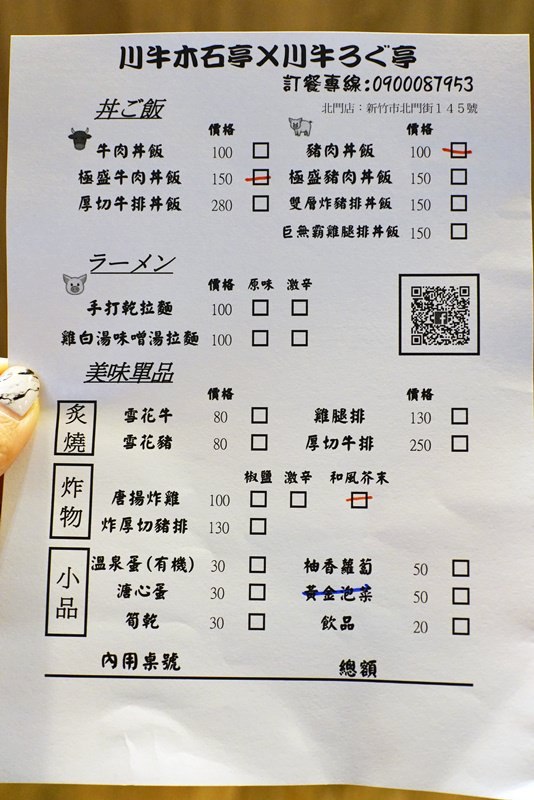 川牛木石亭X川牛ろぐ亭
訂餐專線:0900087953
北門店：新竹市北門街１４５號
丼ご飯
價格 價格
牛肉丼飯 100 豬肉丼飯 100
極盛牛肉丼飯 150 極盛豬肉丼飯 150
厚切牛排丼飯 280 雙層炸豬排丼飯 150
巨無霸雞腿排丼飯 150
ラーメン
價格 原味 激辛
手打乾拉麵 100
雞白湯味噌湯拉麵 100
美味單品
價格 價格
炙燒
雪花牛 80 雞腿排 130
雪花豬 80 厚切牛排 250
炸物
椒鹽 激辛 和風芥末
唐揚炸雞 100
炸厚切豬排 130
小品
溫泉蛋(有機) 30 柚香蘿蔔 50
溏心蛋 30 黃金泡菜 50
筍乾 30 飲品 20
內用桌號 總額